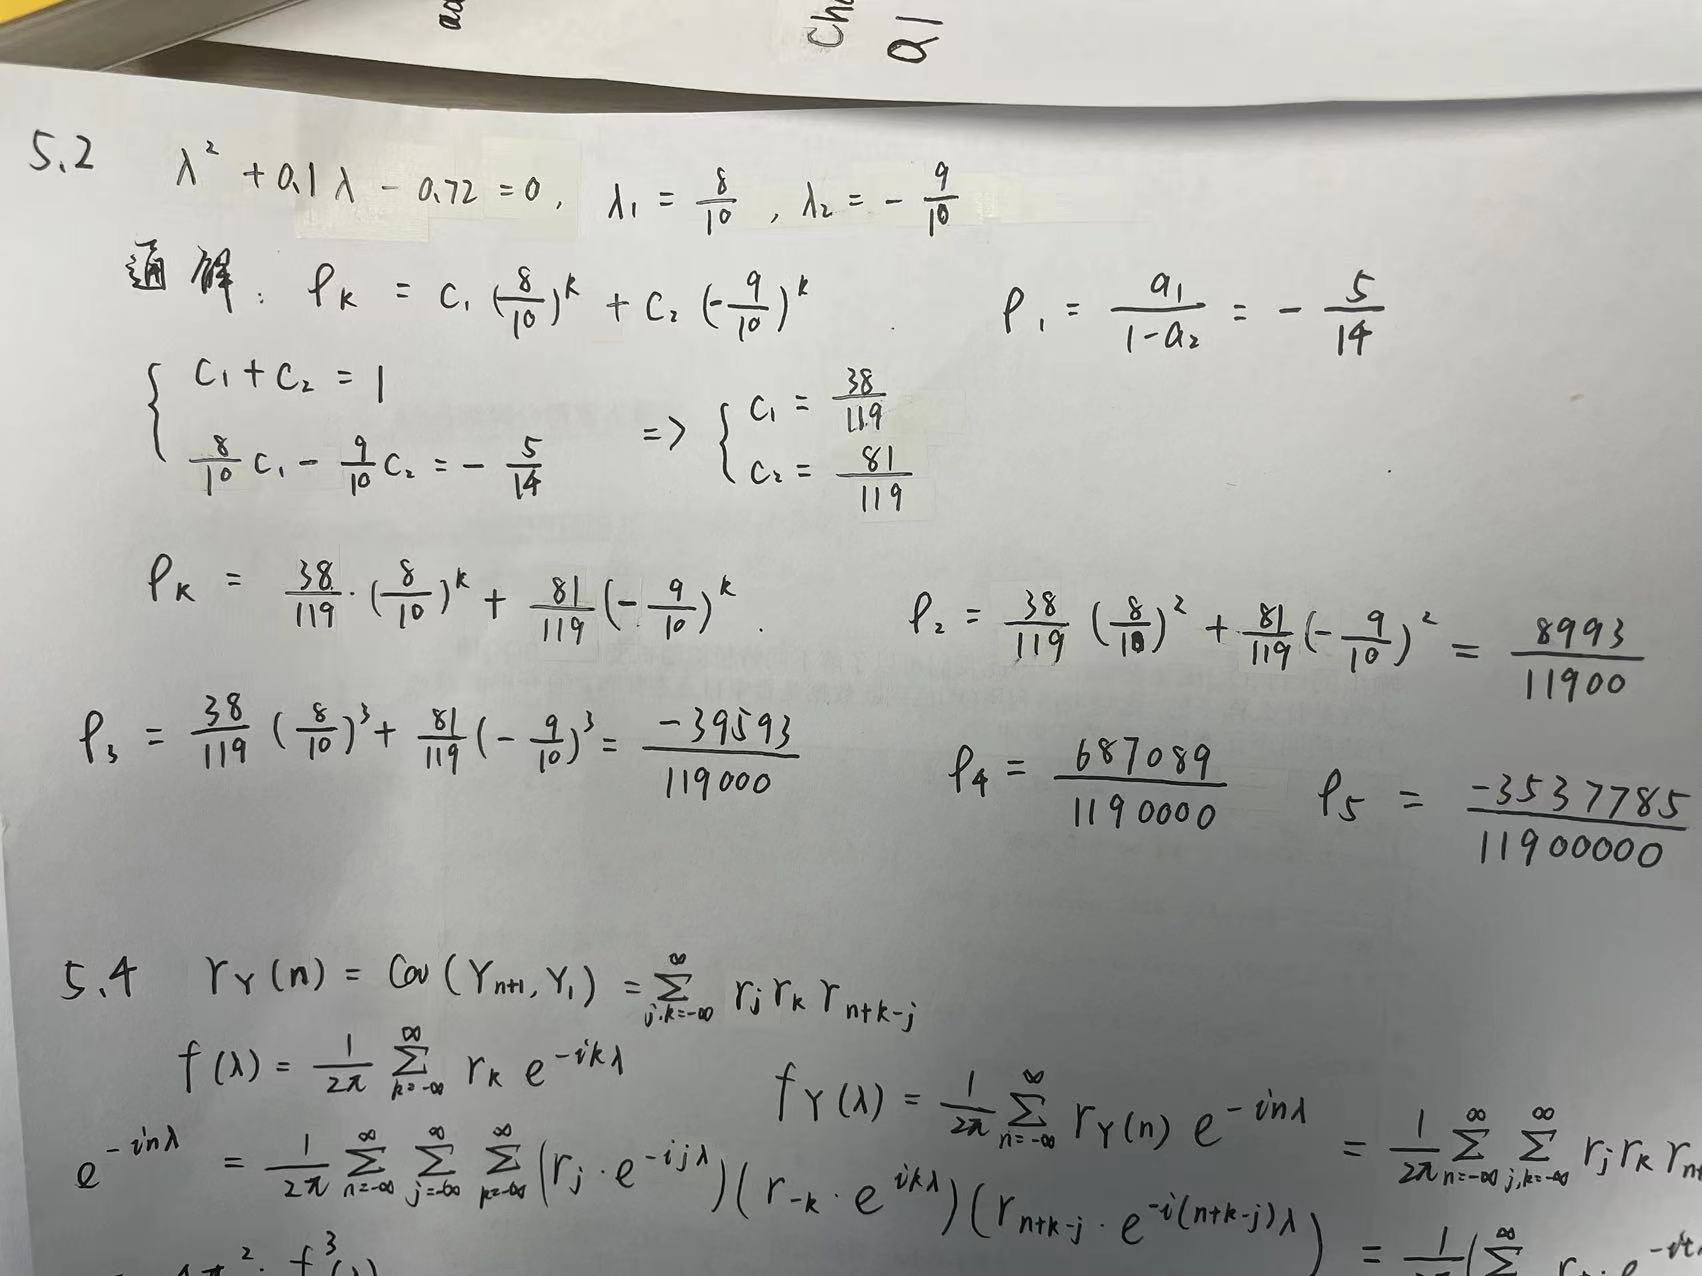 Q1
5.2 λ² + 0.1λ - 0.72 = 0, λ₁ = 8/10, λ₂ = - 9/10
通解: ρ_k = C₁ (8/10)^k + C₂ (-9/10)^k ρ₁ = a₁/(1-a₂) = - 5/14
{ C₁ + C₂ = 1
8/10 C₁ - 9/10 C₂ = - 5/14 => { C₁ = 38/119
C₂ = 81/119
ρ_k = 38/119 · (8/10)^k + 81/119 (-9/10)^k . ρ₂ = 38/119 (8/10)² + 81/119 (-9/10)² = 8993/11900
ρ₃ = 38/119 (8/10)³ + 81/119 (-9/10)³ = -39593/119000 ρ₄ = 687089/1190000 ρ₅ = -3537785/11900000
5.4 r_Y(n) = Cov(Y_{n+1}, Y₁) = Σ_{j,k=-∞}^{∞} r_j r_k r_{n+k-j}
f(λ) = 1/2π Σ_{k=-∞}^{∞} r_k e^{-ikλ} f_Y(λ) = 1/2π Σ_{n=-∞}^{∞} r_Y(n) e^{-inλ} = 1/2π Σ_{n=-∞}^{∞} Σ_{j,k=-∞}^{∞} r_j r_k
e^{-inλ} = 1/2π Σ_{n=-∞}^{∞} Σ_{j=-∞}^{∞} Σ_{k=-∞}^{∞} (r_j · e^{-ijλ})(r_{-k} · e^{ikλ})(r_{n+k-j} · e^{-i(n+k-j)λ}) =